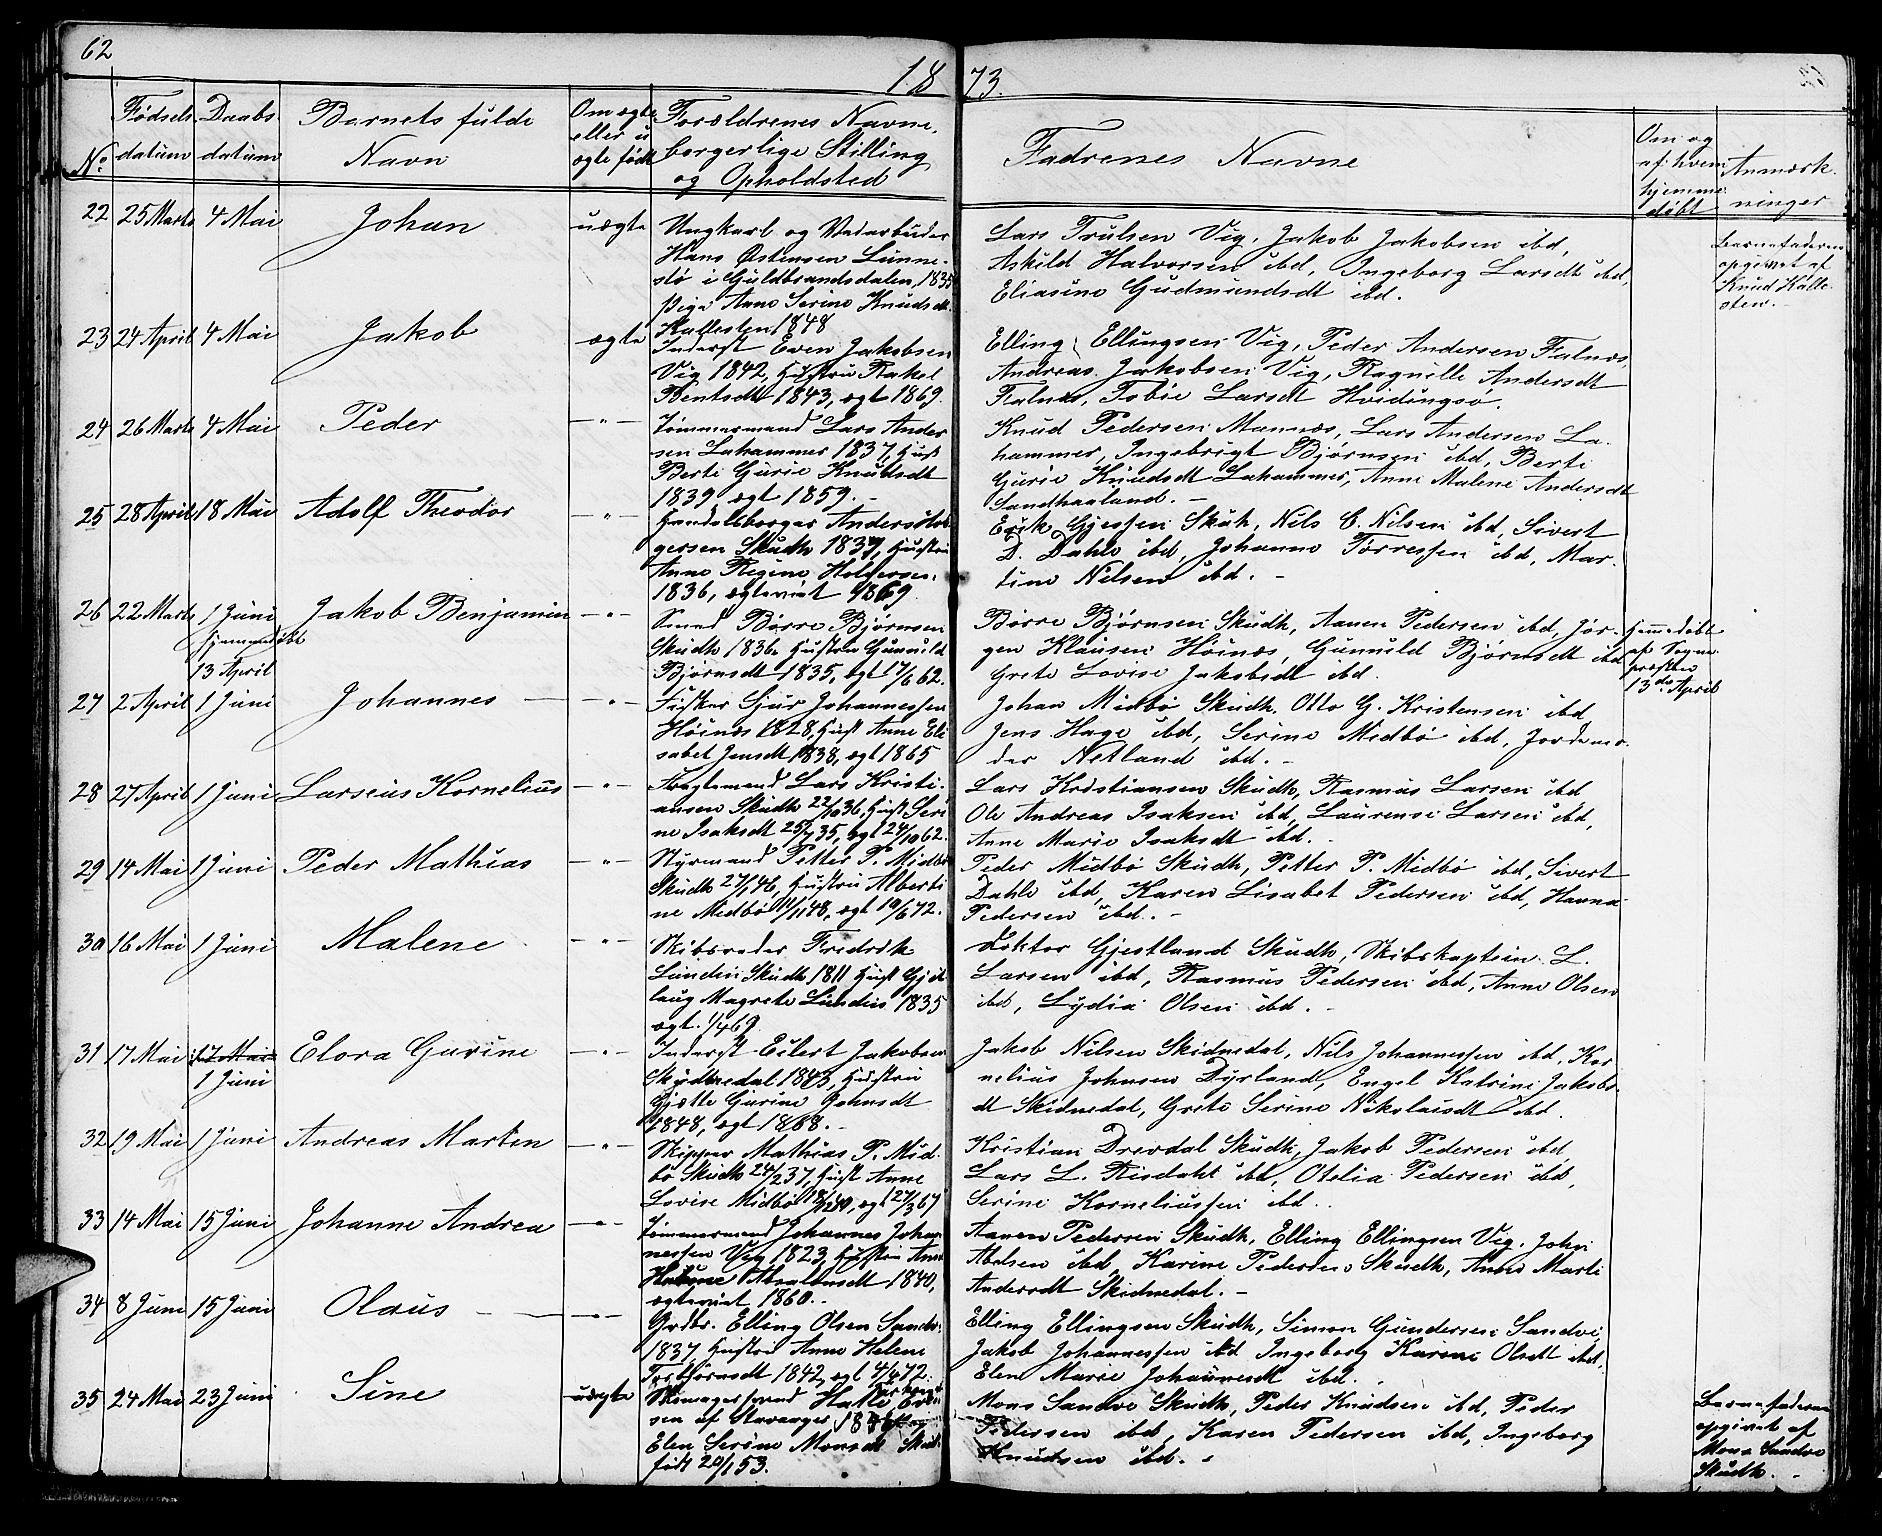 62
18 73.
No
Fødsels datum
Daabs datum
Barnets fulde Navn
Om ægte eller uægte født
Forældrenes Navne, borgerlige Stilling og Opholdsted
Fadrenes Navne
Om og af hvem hjemme døbt
Anmærkninger
22 25 Marts 4 Mai Johan uægte
Ungkarl og Vadarbeider
Hans Østensen Lunne-
slo i Guldbrandsdalen, 1835
Pige Anne Serine Knudsdt.
Kallesten 1848
Lars Trulsen Vig, Jakob Jakobsen ibd,
Askild Halvorsen ibd, Ingeborg Larsdt ibd,
Eliasine Gudmundsdt ibd.
Barnefaderen
opgivet af
Knud Kalle-
sten.
23 24 April 4 Mai Jakob ægte
Inderst Even Jakobsen
Vig 1842, Hustru Rakel
Bentsdt 1843, ægt 1869.
Elling Ellingsen Vig, Peder Andersen Falnæs,
Andreas Jakobsen Vig, Ragnille Andersdt
Falnæs, Tobie Larsdt Hvidingsø.
24 26 Marts 4 Mai Peder — " —
Tømmermand Lars Ander
sen Lahammer 1837, Hust
Berte Gurie Knutsdt
1839 ægt 1859. -
Knud Pedersen Mannæs, Lars Andersen La-
hammer, Ingebrigt Bjørnsen ibd, Berte
Gurie Knudsdt Lahammer, Anne Malene Andersdt
Sandhaaland. -
25 28 April 18 Mai Adolf Theodor — " —
Handelsborger Anders Hol-
gersen Skudh 1837, Hustru
Anne Regine Holgersen
1836, ægteviet 1869.
Erik Gjessen Skuh, Nils C. Nilsen ibd, Sivert
D. Dahle ibd, Johanne Torressen ibd, Mar-
tine Nilsen ibd. -
26 22 Marts 1 Juni Jakob Benjamin — " —
hjemmedøbt
13 April
Smed Børre Bjørnsen
Skudh 1836, Hustru Gunnild
Bjørnsdt 1835, ægt 17/6 62.
Børre Bjørnsen Skudh, Aanen Pedersen ibd, Jør-
gen Klausen Høinæs, Gunnild Bjørnsdt ibd
Grete Lovise Jakobsdt ibd.
Hjemedøbt
af Sogne
præsten
13de April
27 2 April 1 Juni Johannes — " —
Fisker Sjur Johannessen
Høinæs 1828, Hust Anne Eli
sabet Jensdt 1838, ægt 1865
Johan Midbø Skudh, Otto G. Kristensen ibd,
Jens Hage ibd, Serine Midbø ibd, Jordemo-
der Netland ibd. -
28 27 April 1 Juni Larseus Kornelius — " —
Fragtemand Lars Kristi-
ansen Skudh 22/10 36, Hust Seri
ne Isaksdt 25/7 35, ægt 24/10 62.
Lars Kristiansen Skudh, Rasmus Larsen ibd
Ole Andreas Isaksen ibd, Laurense Larsen ibd,
Anne Marie Isaksdt ibd. -
29 14 Mai 1 Juni Peder Mathias — " —
Styrmand Petter P. Midbø
Skudh 27/1 46, Hustru Alberti
ne Midbø 11/11 48, ægt 19/6 72.
Peder Midbø Skudh, Petter P. Midbø ibd, Sivert
Dahle ibd, Karen Lisabet Pedersen ibd, Hanna
Pedersen ibd. -
30 16 Mai 1 Juni Malene — " —
Skibsreder Fredrik
Lundin Skudh 1811 Hust Gjød
laug Magrete Lundin 1835
ægt. 1/4 69.
Doktor Gjestland Skudh, Skibskaptein L.
Larsen ibd, Rasmus Pedersen ibd, Anne Olsen
ibd, Lydia Olsen ibd. -
31 17 Mai 17 Mai Elora Gurine — " —
1 Juni
Inderst Eilert Jakobsen
Skydnedal 1843, Hustru
Gjætte Gurine Johnsdt
1848, ægt 1868. -
Jakob Nilsen Skidnedal, Nils Johannessen ibd, Kor
nelius Johnsen Dyrland, Engel Katrine Jakobs-
dt Skidnedal, Grete Serine Nikolaisdt ibd.
32 19 Mai 1 Juni Andreas Marten — " —
Skipper Mathias P. Mid-
bø Skudh 24/2 37, Hust Anne
Lovise Midbø 18/12 40, ægt 27/3 67
Kristian Drevdal Skudh, Jakob Pedersen ibd,
Lars L. Risdahl ibd, Otelia Pedersen ibd,
Serine Korneliussen ibd.
33 14 Mai 15 Juni Johanne Andrea — " —
Tømmermand Johannes Johan
nessen Vig 1823, Hustru Anne
Absalonsdt 1840,
ægteviet 1860. -
Aanen Pedersen Skudh, Elling Ellingsen Vig, John
Abelsen ibd, Karine Pedersen Skudh, Anne Marte
Andersdt Skidnedal. -
34 8 Juni 15 Juni Olaus — " —
Grdbr. Elling Olsen Sandv.
1837, Hustru Anne Helene
Torbjørnsdt 1842, ægt 4/4 72.
Elling Ellingsen Skudh, Simon Gundersen Sandve,
Jakob Johannessen ibd Ingeborg Karine Olsdt ibd,
Elen Marie Johannesdt ibd.
35 24 Mai 23 Juni Sine uægte
Skomagersvend Halle
sen af Stavanger, 18
Elen Serine Monsdt Skud
født 20/1 53.
Mons Sandve Skudh, Peder Knudsen ibd, Peder
Pedersen ibd, Karen Pedersen ibd, Ingeborg
Knudsen ibd. -
Barnefaderen
opgivet af
Mons Sandve
Skudh. -